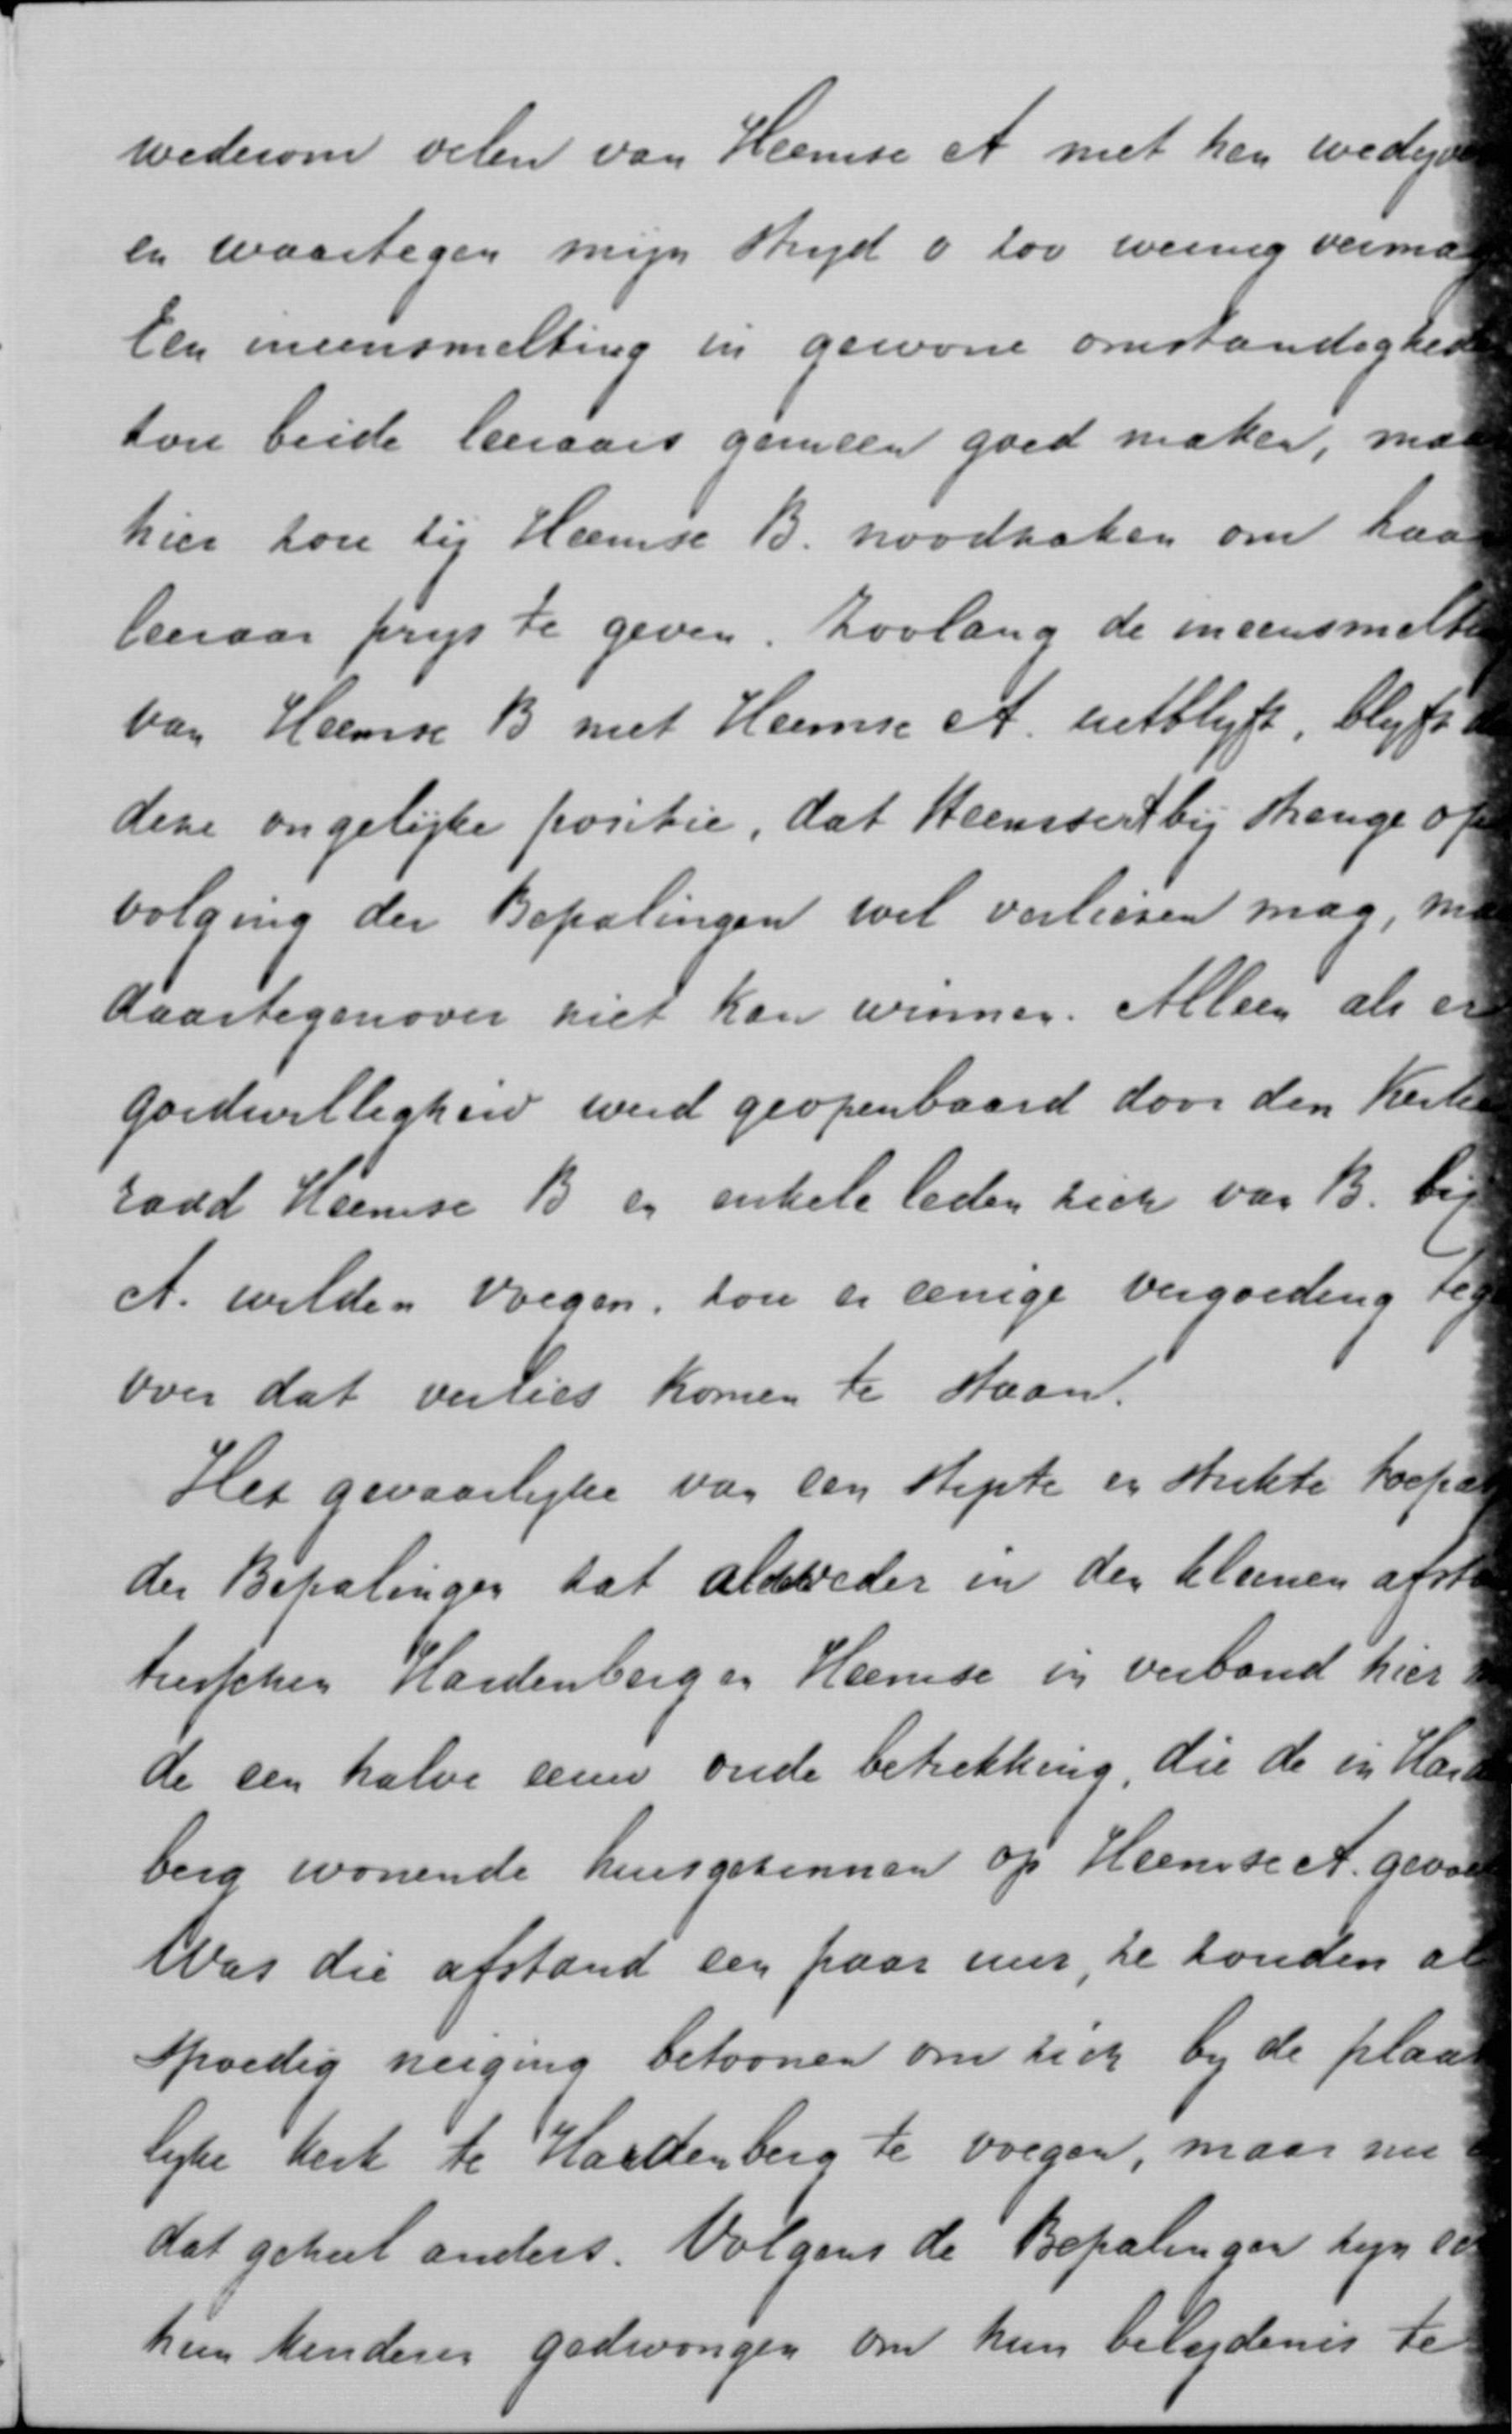 wederom velen van Heemse A met hen wedijve
en waartegen mijn strijd o zoo weinig vermag
Een ineensmelting in gewone omstandighede
zou beide leeraars gemeen goed maken, maa
hier zou zij Heemse B. noodzaken om haa
leeraar prijs te geven. Zoolang de ineensmelti
van Heemse B met Heemse A. uitblijft, blijft d
deze ongelijke positie, dat Heemse A bij strenge op
volging der Bepalingen wel verliezen mag, ma
daartegenover niet kan winnen. Alleen als er
goedwilligheid werd geopenbaard door den Kerke
raad Heemse B en enkele leden zich van B. bij
A. wilden voegen, zou er eenige vergoeding teg
over dat verlies komen te staan.
Het gevaarlijke van een stipte en strikte toepas
der Bepalingen zat alweder in den kleinen afsta
tusschen Hardenberg en Heemse in verband hier m
de een halve eeuw oude betrekking, die de in Hard
berg wonende huisgezinnen op Heemse A. gevoe
Was die afstand een paar uur, ze zouden al
spoedig neiging betoonen om zich bij de plaat
lijke kerk te Hardenberg te voegen, maar nu
dat geheel anders. Volgens de Bepalingen zijn
hun kinderen gedwongen om hun belijdenis te